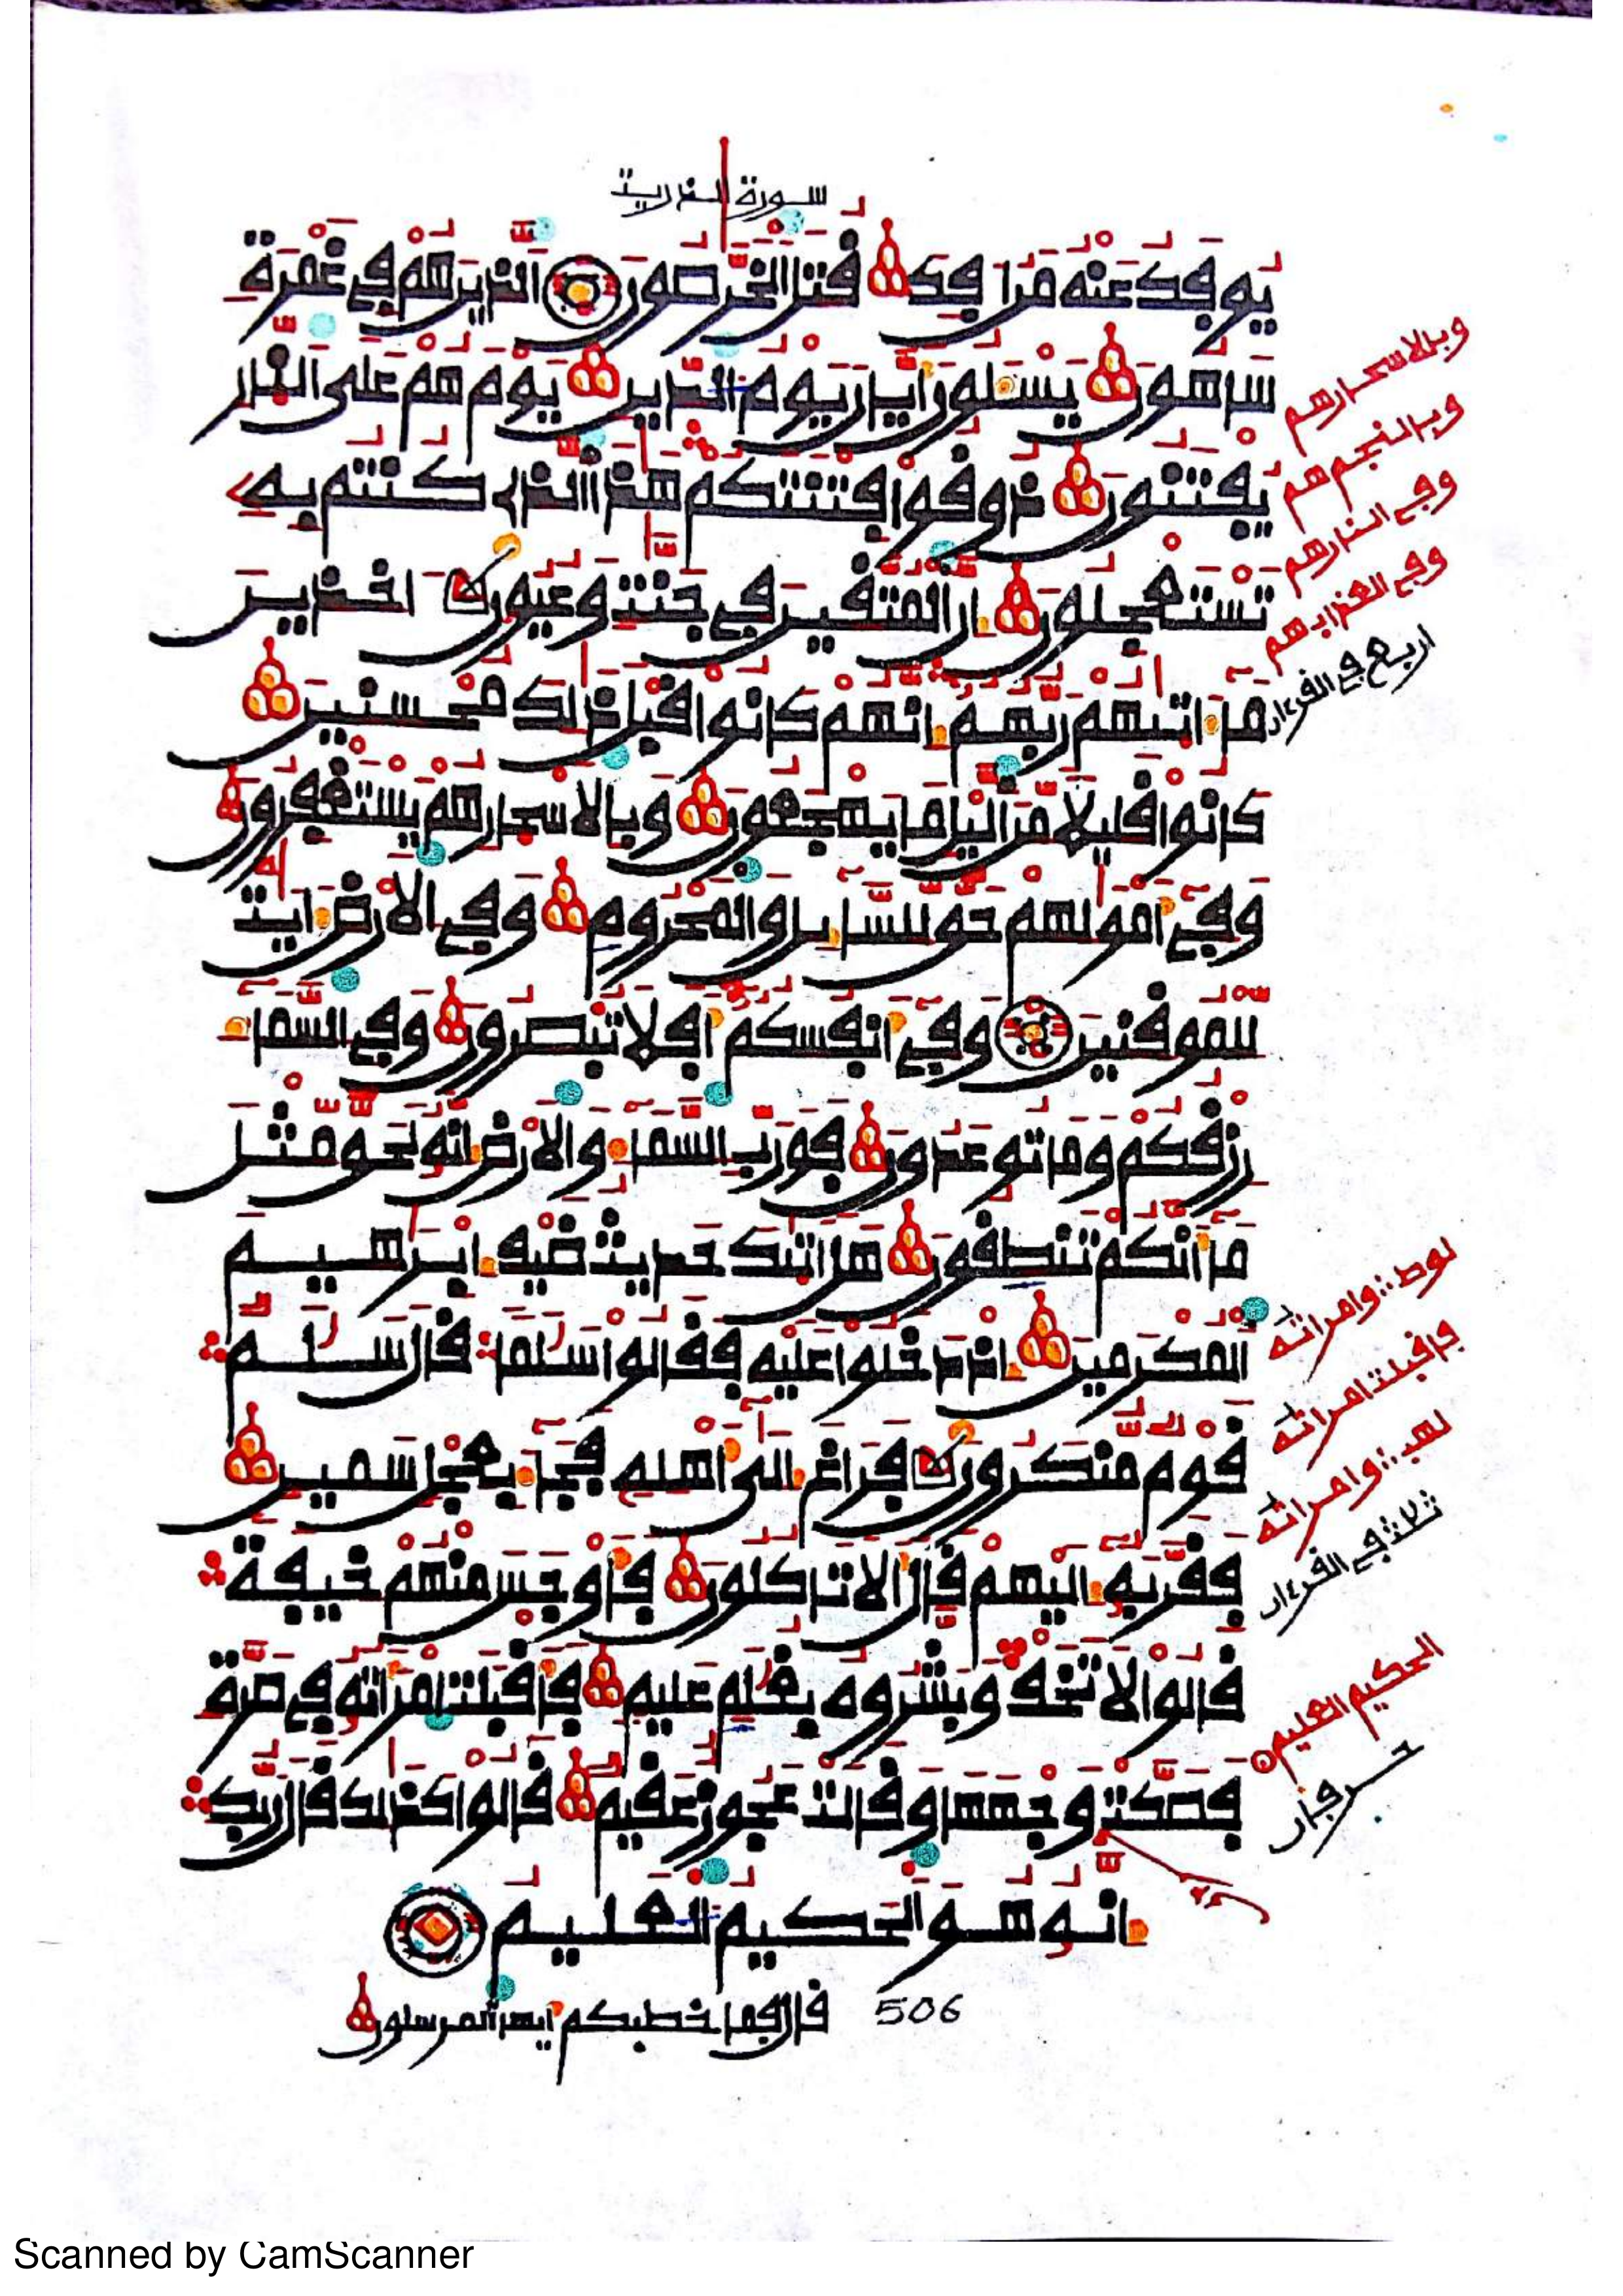 سورة الذريت
يوفك عنه من افك قتل الخرصون الذين هم في غمرة
ساهون يسلون أيان يوم الدين يوم هم على النار
يفتنون ذوقوا فتنتكم هذا الذي كنتم به
تستعجلون إن المتقين في جنت وعيون اخذين
ما اتيهم ربهم إنهم كانوا قبل ذلك محسنين
كانوا قليلا من اليل ما يهجعون وبالاسحارهم يستغفرون
وفي أمولهم حق للسايل والمحروم وفي الارض ايت
للموقنين وفي أنفسكم أفلا تبصرون وفي السماء
رزقكم وما توعدون فورب السماء والارض إنه لحق مثل
ما أنكم تنطقون هل اتيك حديث ضيف إبرهيم
المكرمين إذ دخلوا عليه فقالوا سلما قال سلم
قوم منكرون فراغ إلى أهله فجاء بعجل سمين
فقربه إليهم قال الا تاكلون فأوجس منهم خيفة
قالوا لا تخف وبشروه بغلم عليم فأقبلت امرأته في صرة
فصكت وجهها وقالت عجوز عقيم قالوا كذلك قال ربك
إنه هو الحكيم العليم
قال فما خطبكم أيها المرسلون
506
وبالاسحارهم
وبالنجم هم
وفي النارهم
وفي العذاب هم
اربع في القرءان
لوط وامراته
فاقبلت امراته
لهب وامراته
ثلاث في القرءان
الحكيم العليم
حرفان
Scanned by CamScanner